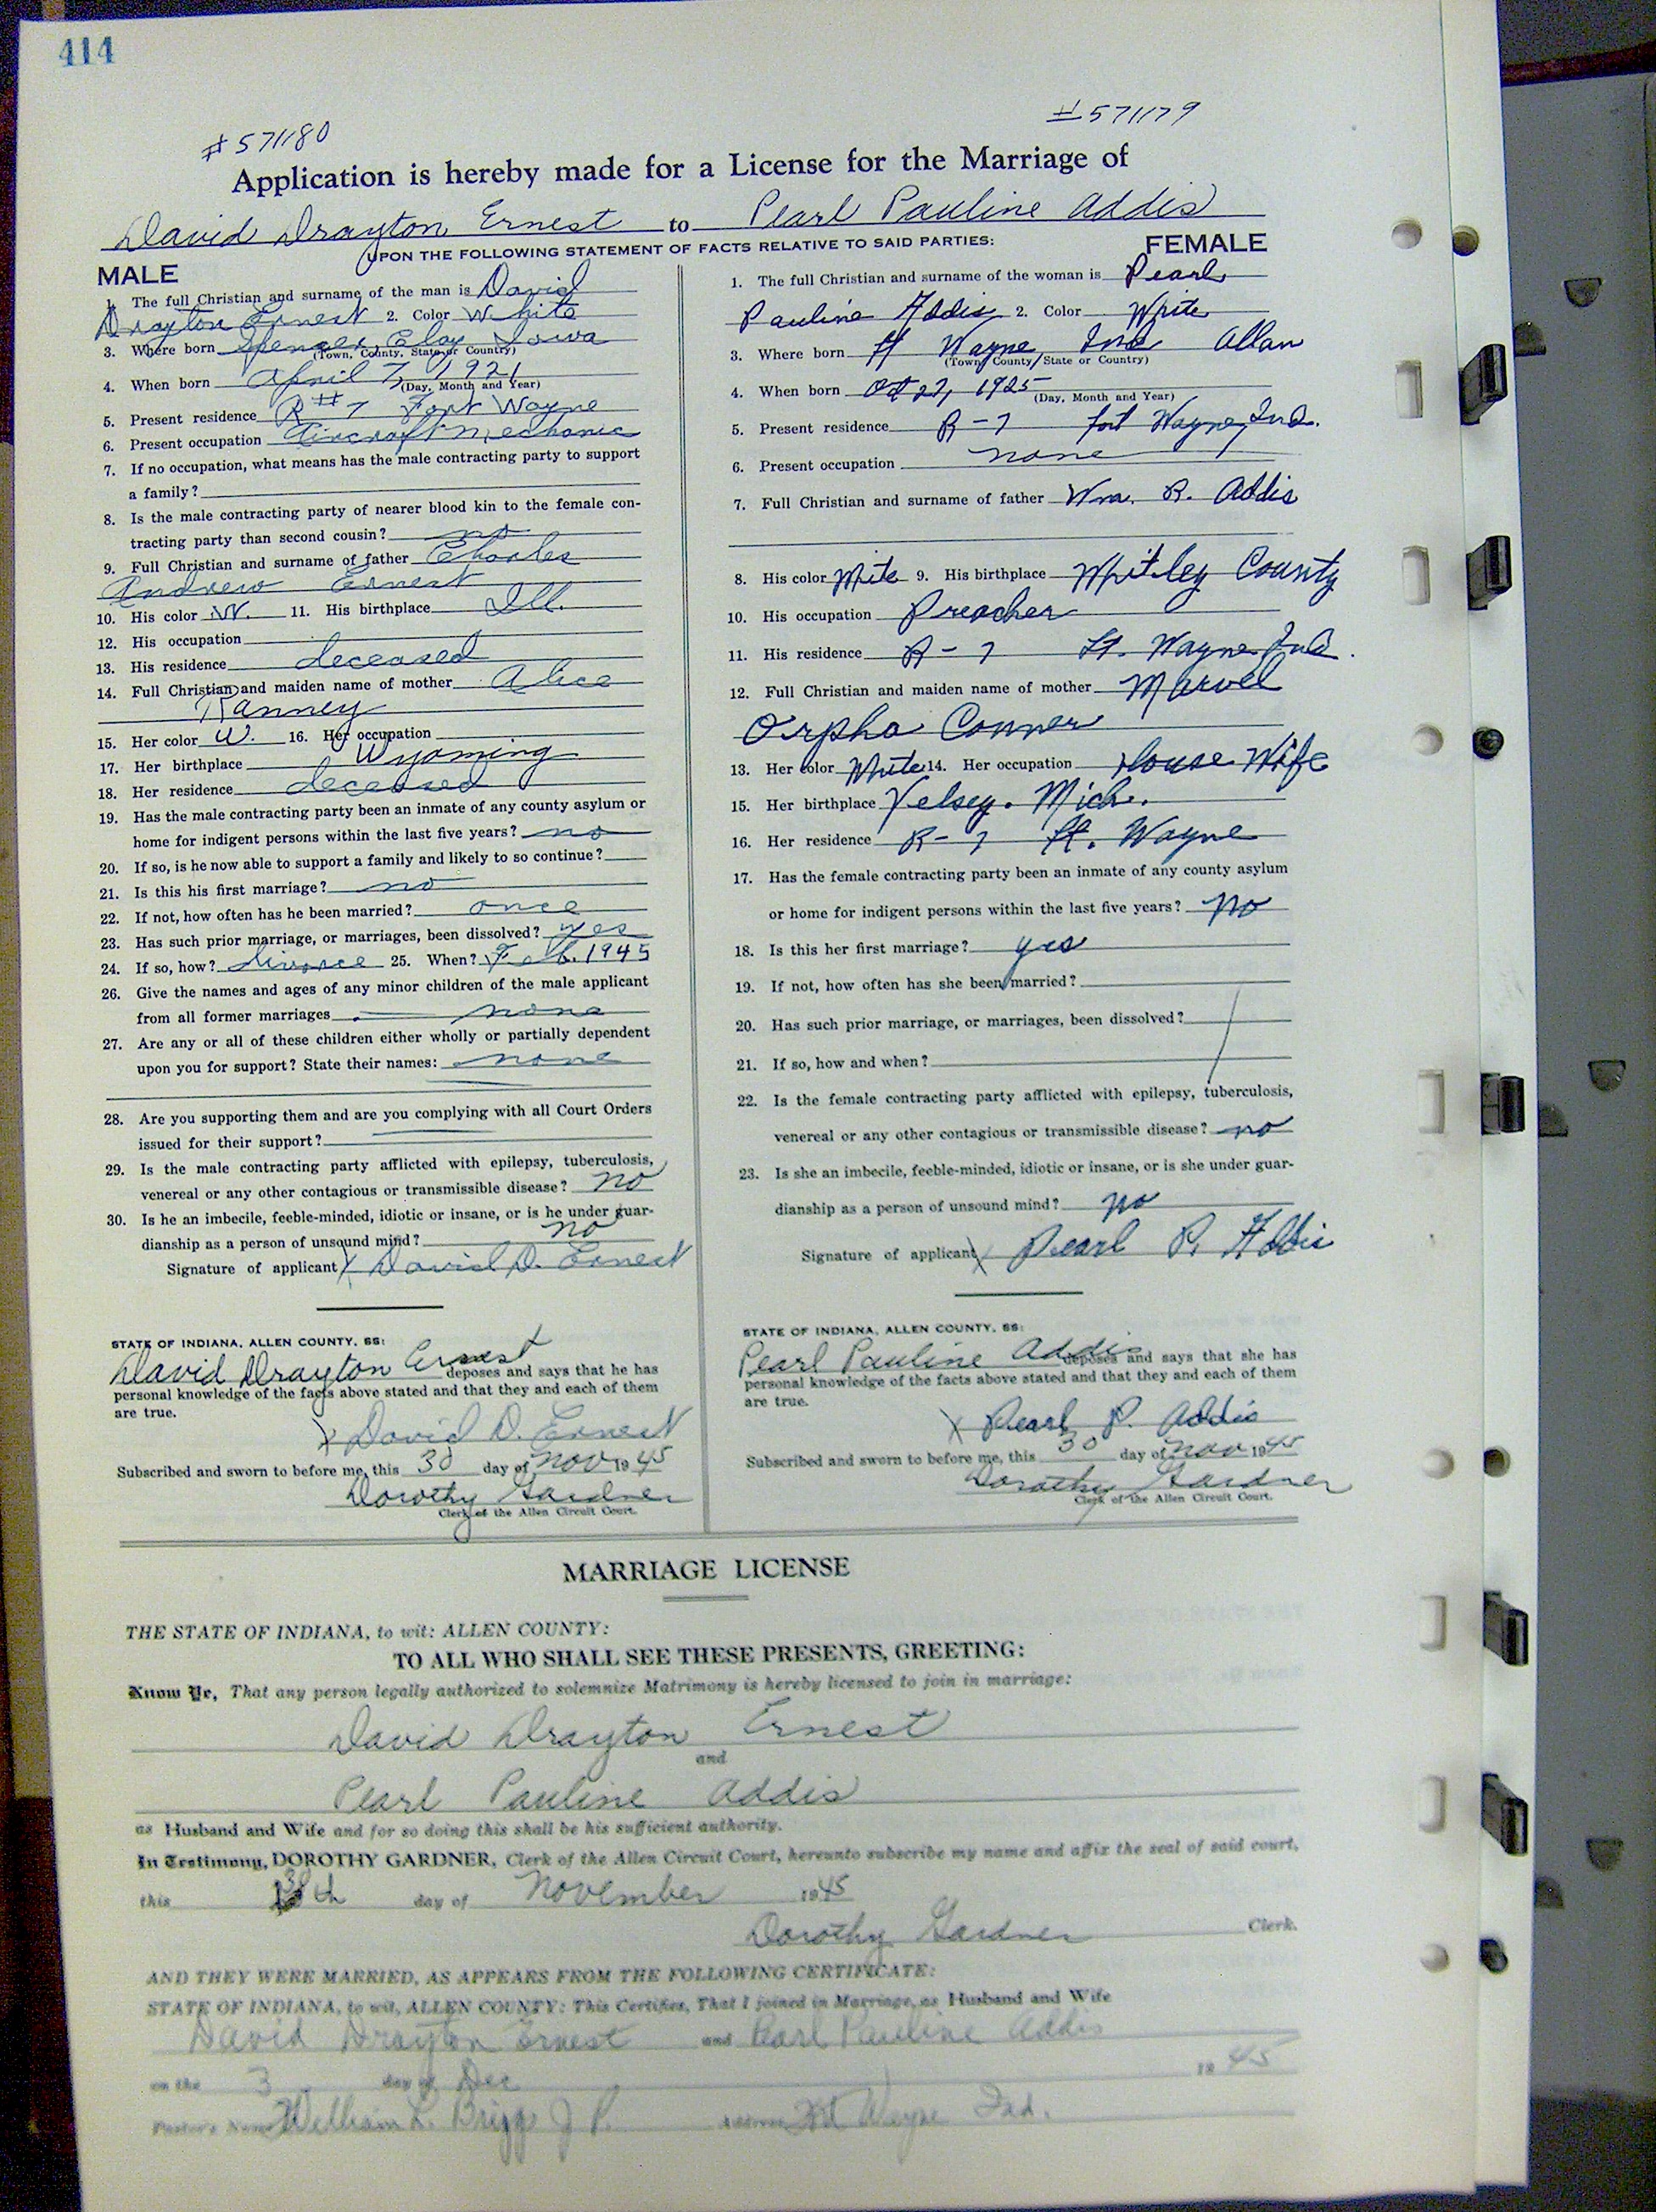 414
#571180
#571179
Application is hereby made for a License for the Marriage of
David Drayton Ernest to Pearl Pauline Addis
UPON THE FOLLOWING STATEMENT OF FACTS RELATIVE TO SAID PARTIES:
MALE
1. The full Christian and surname of the man is David
Drayton Ernest 2. Color White
3. Where born Spencer, Clay Iowa
(Town, County, State or Country)
4. When born April 7, 1921
(Day, Month and Year)
5. Present residence R#7 Fort Wayne
6. Present occupation Aircraft Mechanic
7. If no occupation, what means has the male contracting party to support
a family?
8. Is the male contracting party of nearer blood kin to the female con-
tracting party than second cousin? no
9. Full Christian and surname of father Charles
Andrew Ernest
10. His color W. 11. His birthplace Ill.
12. His occupation
13. His residence deceased
14. Full Christian and maiden name of mother Alice
Ranney
15. Her color W. 16. Her occupation
17. Her birthplace Wyoming
18. Her residence deceased
19. Has the male contracting party been an inmate of any county asylum or
home for indigent persons within the last five years? no
20. If so, is he now able to support a family and likely to so continue?
21. Is this his first marriage? no
22. If not, how often has he been married? once
23. Has such prior marriage, or marriages, been dissolved? yes
24. If so, how? divorce 25. When? Feb. 1945
26. Give the names and ages of any minor children of the male applicant
from all former marriages none
27. Are any or all of these children either wholly or partially dependent
upon you for support? State their names: none
28. Are you supporting them and are you complying with all Court Orders
issued for their support?
29. Is the male contracting party afflicted with epilepsy, tuberculosis,
venereal or any other contagious or transmissible disease? no
30. Is he an imbecile, feeble-minded, idiotic or insane, or is he under guar-
dianship as a person of unsound mind? no
Signature of applicant X David D. Ernest
STATE OF INDIANA, ALLEN COUNTY, SS:
David Drayton Ernest deposes and says that he has
personal knowledge of the facts above stated and that they and each of them
are true.
X David D. Ernest
Subscribed and sworn to before me, this 30 day of Nov 1945
Dorothy Gardner
Clerk of the Allen Circuit Court.
FEMALE
1. The full Christian and surname of the woman is Pearl
Pauline Addis 2. Color White
3. Where born Ft Wayne, Ind Allan
(Town, County, State or Country)
4. When born Oct 27, 1925
(Day, Month and Year)
5. Present residence R-7 Fort Wayne, Ind.
6. Present occupation none
7. Full Christian and surname of father Wm. R. Addis
8. His color White 9. His birthplace Whitley County
10. His occupation Preacher
11. His residence R-7 Ft. Wayne Ind.
12. Full Christian and maiden name of mother Marvel
Orpha Conner
13. Her color White 14. Her occupation House Wife
15. Her birthplace Kelsey. Mich.
16. Her residence R-7 Ft. Wayne
17. Has the female contracting party been an inmate of any county asylum
or home for indigent persons within the last five years? no
18. Is this her first marriage? yes
19. If not, how often has she been married?
20. Has such prior marriage, or marriages, been dissolved?
21. If so, how and when?
22. Is the female contracting party afflicted with epilepsy, tuberculosis,
venereal or any other contagious or transmissible disease? no
23. Is she an imbecile, feeble-minded, idiotic or insane, or is she under guar-
dianship as a person of unsound mind? no
Signature of applicant X Pearl P. Addis
STATE OF INDIANA, ALLEN COUNTY, SS:
Pearl Pauline Addis deposes and says that she has
personal knowledge of the facts above stated and that they and each of them
are true.
X Pearl P. Addis
Subscribed and sworn to before me, this 30 day of Nov 1945
Dorothy Gardner
Clerk of the Allen Circuit Court.
MARRIAGE LICENSE
THE STATE OF INDIANA, to wit: ALLEN COUNTY:
TO ALL WHO SHALL SEE THESE PRESENTS, GREETING:
Know Ye, That any person legally authorized to solemnize Matrimony is hereby licensed to join in marriage:
David Drayton Ernest
and
Pearl Pauline Addis
as Husband and Wife and for so doing this shall be his sufficient authority.
In Testimony, DOROTHY GARDNER, Clerk of the Allen Circuit Court, hereunto subscribe my name and affix the seal of said court,
this 30th day of November 1945
Dorothy Gardner Clerk.
AND THEY WERE MARRIED, AS APPEARS FROM THE FOLLOWING CERTIFICATE:
STATE OF INDIANA, to wit, ALLEN COUNTY: This Certifies, That I joined in Marriage, as Husband and Wife
David Drayton Ernest and Pearl Pauline Addis
on the 3 day of Dec 1945
Pastor's Name William L. Briggs J P. Address Ft Wayne Ind.